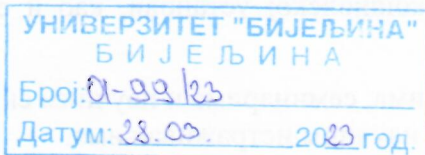 УНИВЕРЗИТЕТ "БИЈЕЉИНА"
БИЈЕЉИНА
Број: 01-99/23
Датум: 28.03. 2023 год.